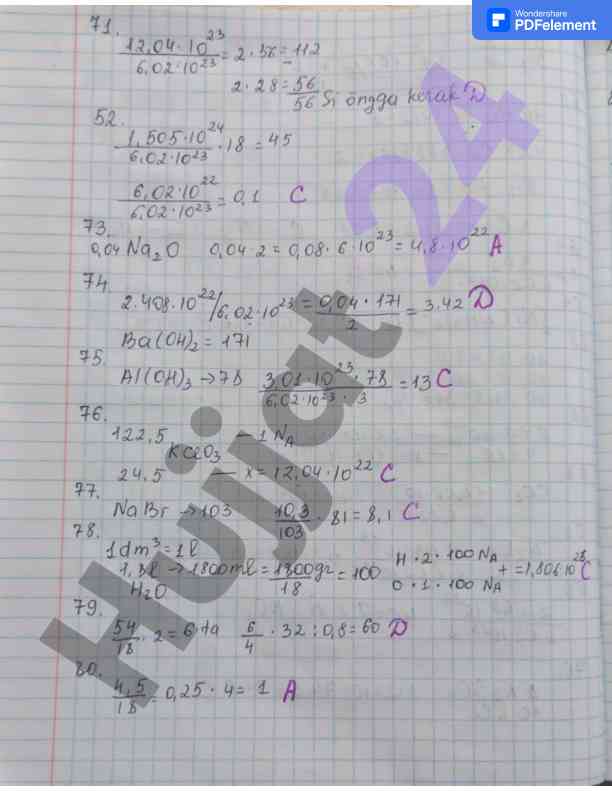 Wondershare
PDFelement
71.
12,04·10²³/6,02·10²³ = 2·56 = 112
2·28 = 56/56 Si õngda kerak D
52.
1,505·10²⁴/6,02·10²³ · 18 = 45
6,02·10²²/6,02·10²³ = 0,1 C
73.
0,04 Na₂O 0,04·2 = 0,08·6·10²³ = 4,8·10²² A
74.
2.408·10²²/6,02·10²³ = 0,04·171/2 = 3.42 D
Ba(OH)₂ = 171
75.
Al(OH)₃ → 78 3,01·10²³·78/6,02·10²³·3 = 13 C
76.
122,5 — 1 Nₐ
KClO₃
24,5 — x = 12,04·10²² C
77.
NaBr → 103 10,3/103 · 81 = 8,1 C
78.
1dm³ = 1l
1,8l → 1800ml = 1800gr/18 = 100 H·2·100 Nₐ + = 1,806·10²⁶ C
H₂O O·1·100 Nₐ
79.
54/18 · 2 = 6 ta 6/4 · 32 : 0,8 = 60 D
80.
4,5/18 = 0,25·4 = 1 A
Hujjat 24